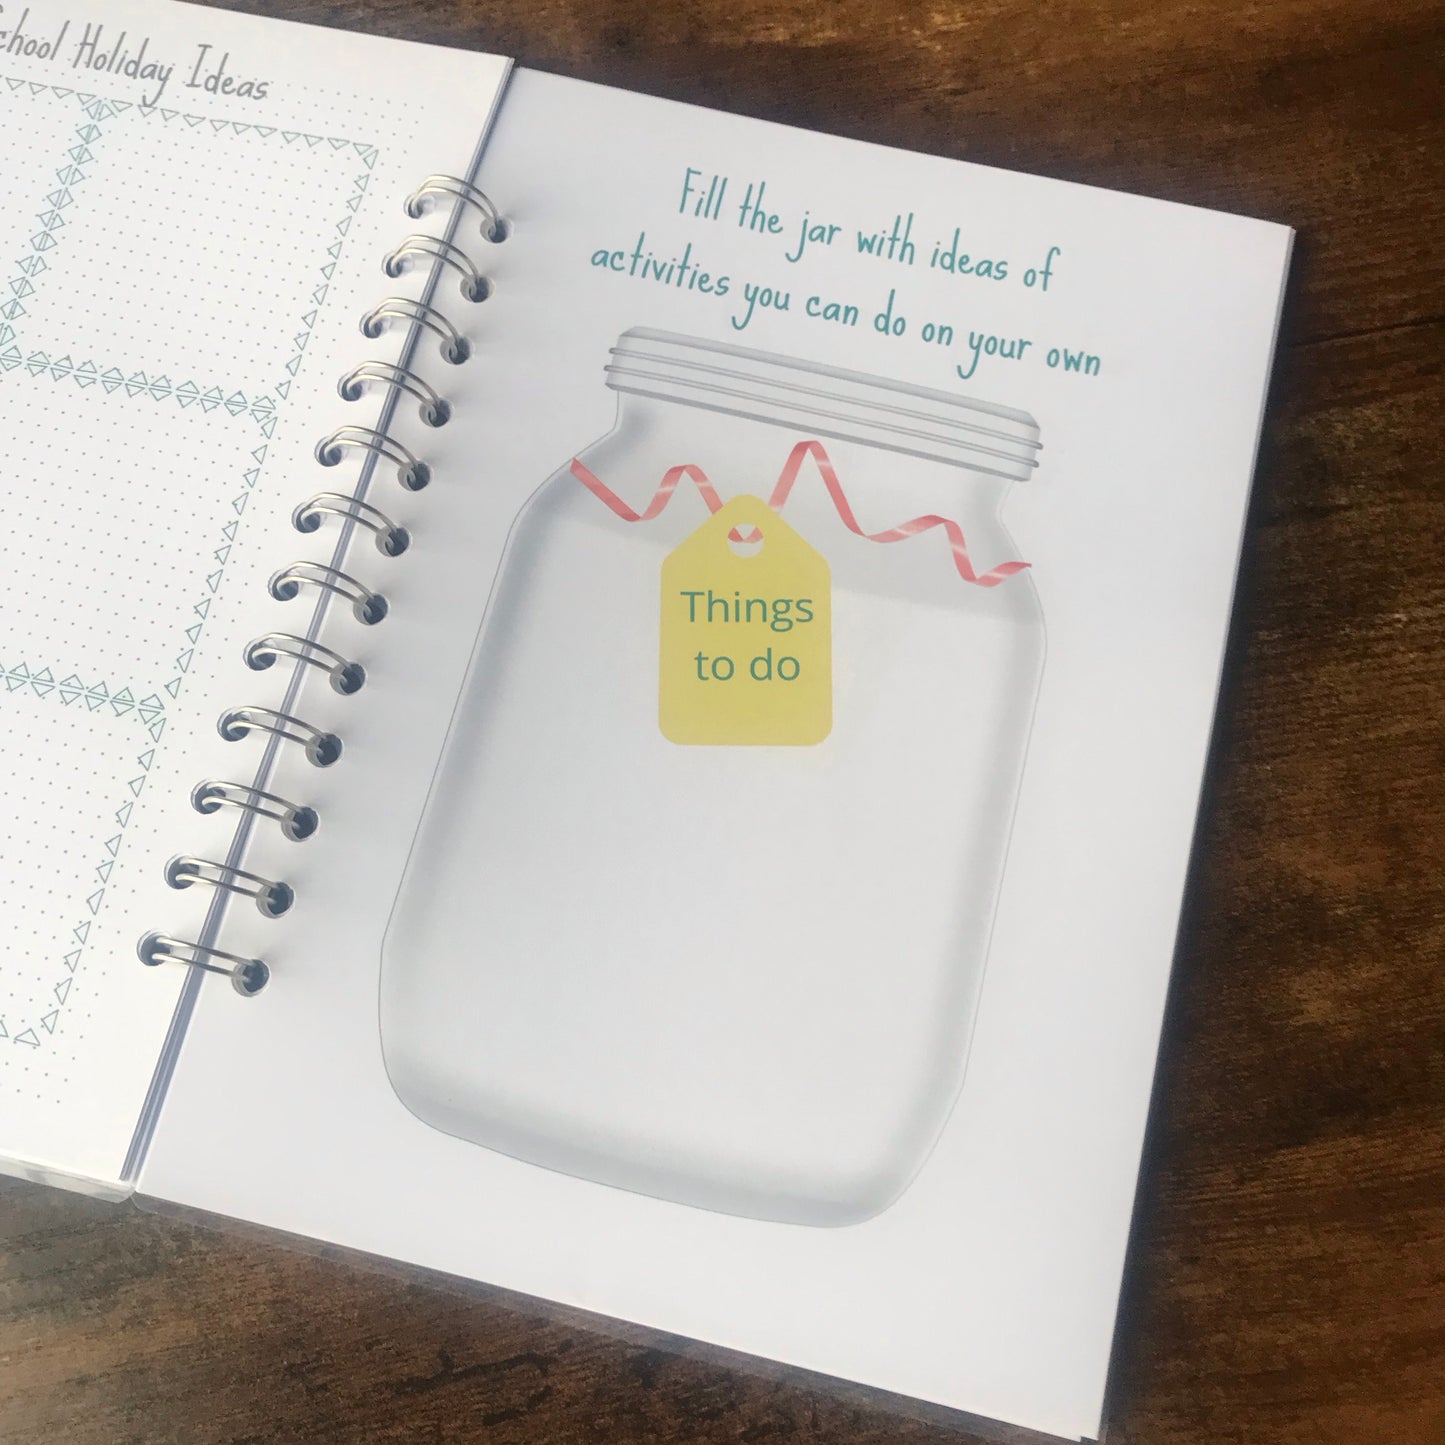 Holiday Ideas
Fill the jar with ideas of
activities you can do on your own
Things
to do